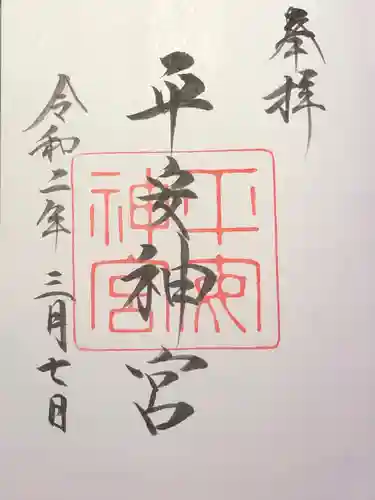 奉拝
平安神宮
平安神宮
令和二年三月七日